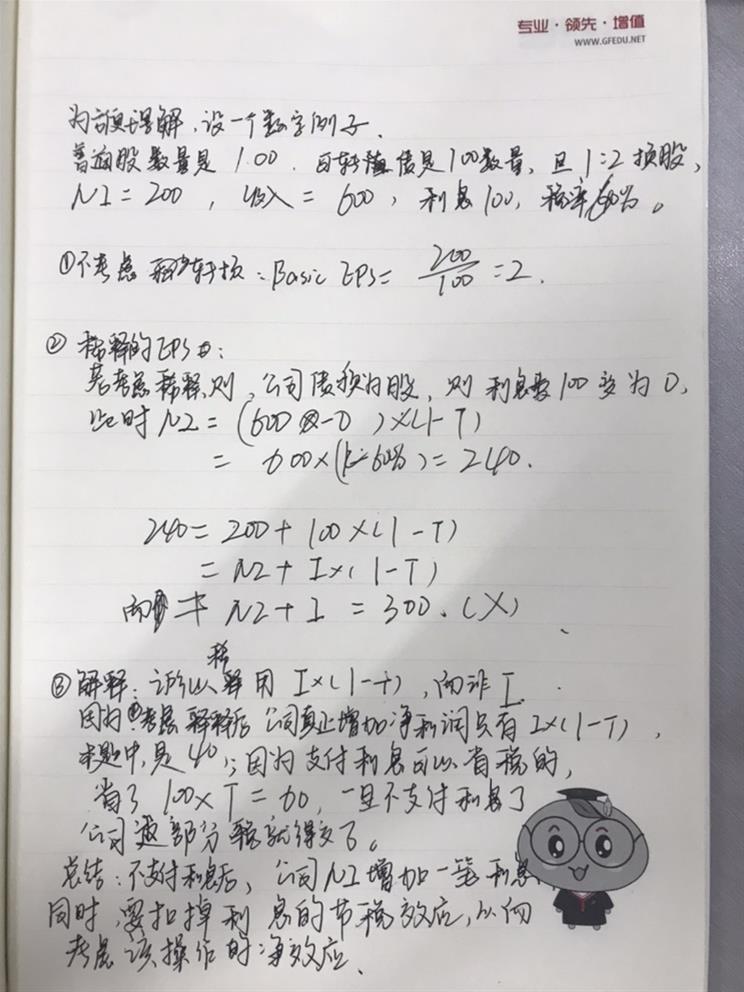 专业·领先·增值
WWW.GFEDU.NET
为方便理解,设一个数字例子.
普通股数量是100.可转债是100数量,且1:2换股,
NI=200,收入=600,利息100,税率60%。
①不考虑稀释转换:Basic EPS=200/100=2.
②稀释的EPS:
若考虑稀释,则,公司债换为股,则利息100变为0,
此时NI=(600-0)×(1-T)
=600×(1-60%)=240.
240=200+100×(1-T)
=NI+I×(1-T)
而≠NI+I=300.(X)
③解释:所以稀释用I×(1-t),而非I.
因为考虑稀释后公司真正增加净利润只有I×(1-T),
本题中,是40,;因为支付利息可以省税的,
省了100×T=60,一旦不支付利息了
公司这部分税就得交了。
总结:不支付利息后,公司NI增加一笔利息,
同时,要扣掉利息的节税效应,从而
考虑该操作的净效应.